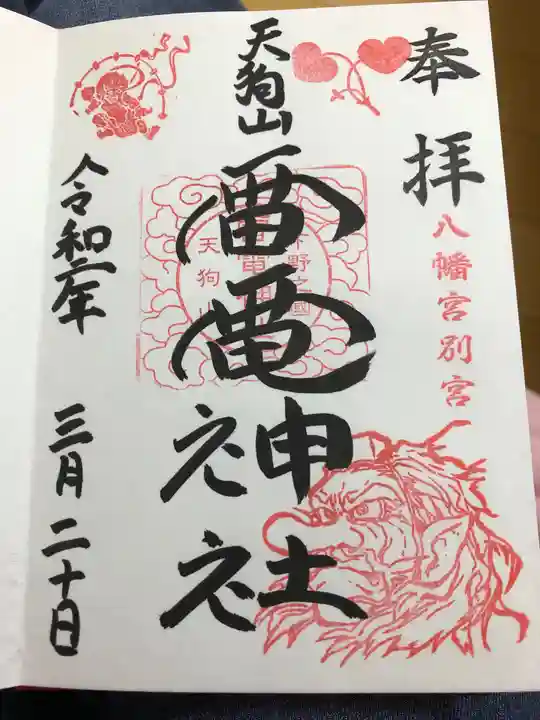 奉拝
八幡宮別宮
天狗山
雷電神社
下野之國
雷電神
天狗山
令和二年
三月二十日